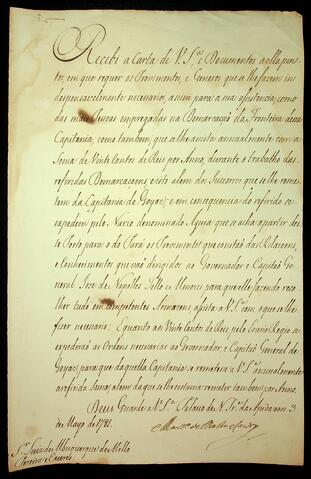 Recebi a Carta de V.ª S.ª e Documentos a ella juntos,
em que requer os Provimentos, e Generos que se lhe fazem in
despensavelmente necessarios, assim para a sua assistencia, como
das mais Pessoas empregadas na Demarcaçaõ da Fronteira dessa
Capitania; como tambem, que se lhe assista annualmente com a
Soma de Vinte Contos de Reis por Anno, durante o trabalho das
referidas Demarcaçoens, e isto alem dos Soccorros que se lhe reme
tem da Capitania de Goyaz; e em consequencia do referido se
expedem pelo Navio denominado Aguia que se acha a partir des
te Porto para o do Pará os Provimentos que constaõ das Relaçoens,
e Conhecimentos que vaõ dirigidos ao Governador e Capitaõ
General Joze de Napoles Tello de Menezes para que elle fazendo reco
lher tudo em competentes Armazens assista a V. S.ª com o que se lhe
fizer necessario: E quanto aos Vinte Contos de Reis, pelo Erario Regio se
expediraõ as Ordens necessarias ao Governador, e Capitaõ General de
Goyaz, para que daquella Capitania se remeta a V. S.ª annualmente
a referida Soma, alem da que se lhe costuma remeter tambem por Anno.
Deos Guarde a V. S.ª Palacio de N. Sr.ª da Ajuda em 3
de Mayo de 1781.
Mart.º de Mello e Castro
S.r Luis de Albuquerque de Mello
Pereira e Caceres